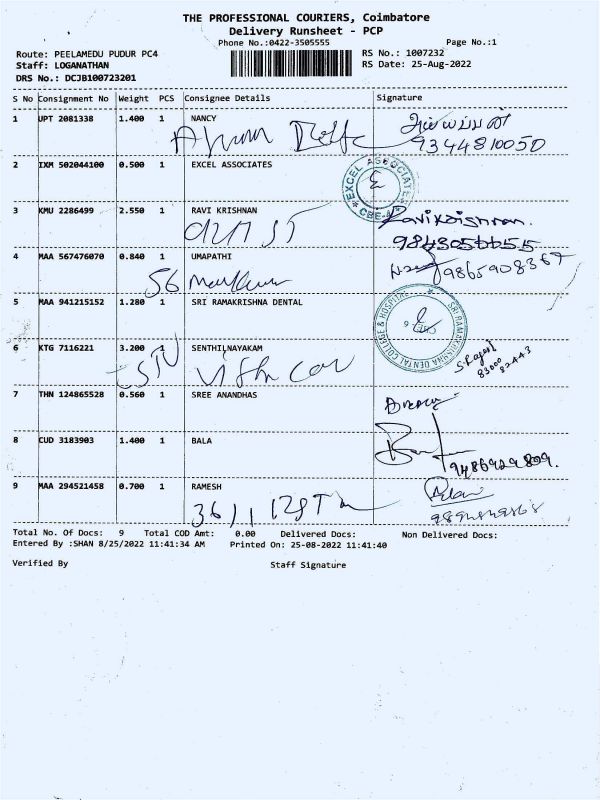 THE PROFESSIONAL COURIERS, Coimbatore
Delivery Runsheet - PCP
Phone No.:0422-3505555
Page No.:1
Route: PEELAMEDU PUDUR PC4
Staff: LOGANATHAN
DRS No.: DCJB100723201
RS No.: 1007232
RS Date: 25-Aug-2022
S No Consignment No Weight PCS Consignee Details Signature
1 UPT 2081338 1.400 1 NANCY
அய்யப்பன்
9344810050
2 IXM 502044100 0.500 1 EXCEL ASSOCIATES
EXCEL ASSOCIATES
CBE-4
3 KMU 2286499 2.550 1 RAVI KRISHNAN
Ravikrishnan.
4 MAA 567476070 0.840 1 UMAPATHI
56
9865908367
5 MAA 941215152 1.280 1 SRI RAMAKRISHNA DENTAL
SRI RAMAKRISHNA DENTAL COLLEGE & HOSPITAL
6 KTG 7116221 3.200 1 SENTHILNAYAKAM
S. Rajesh
83000
82443
7 THN 124865528 0.560 1 SREE ANANDHAS
8 CUD 3183903 1.400 1 BALA
9486929809.
9 MAA 294521458 0.700 1 RAMESH
Total No. Of Docs: 9 Total COD Amt: 0.00 Delivered Docs: Non Delivered Docs:
Entered By :SHAN 8/25/2022 11:41:34 AM Printed On: 25-08-2022 11:41:40
Verified By
Staff Signature